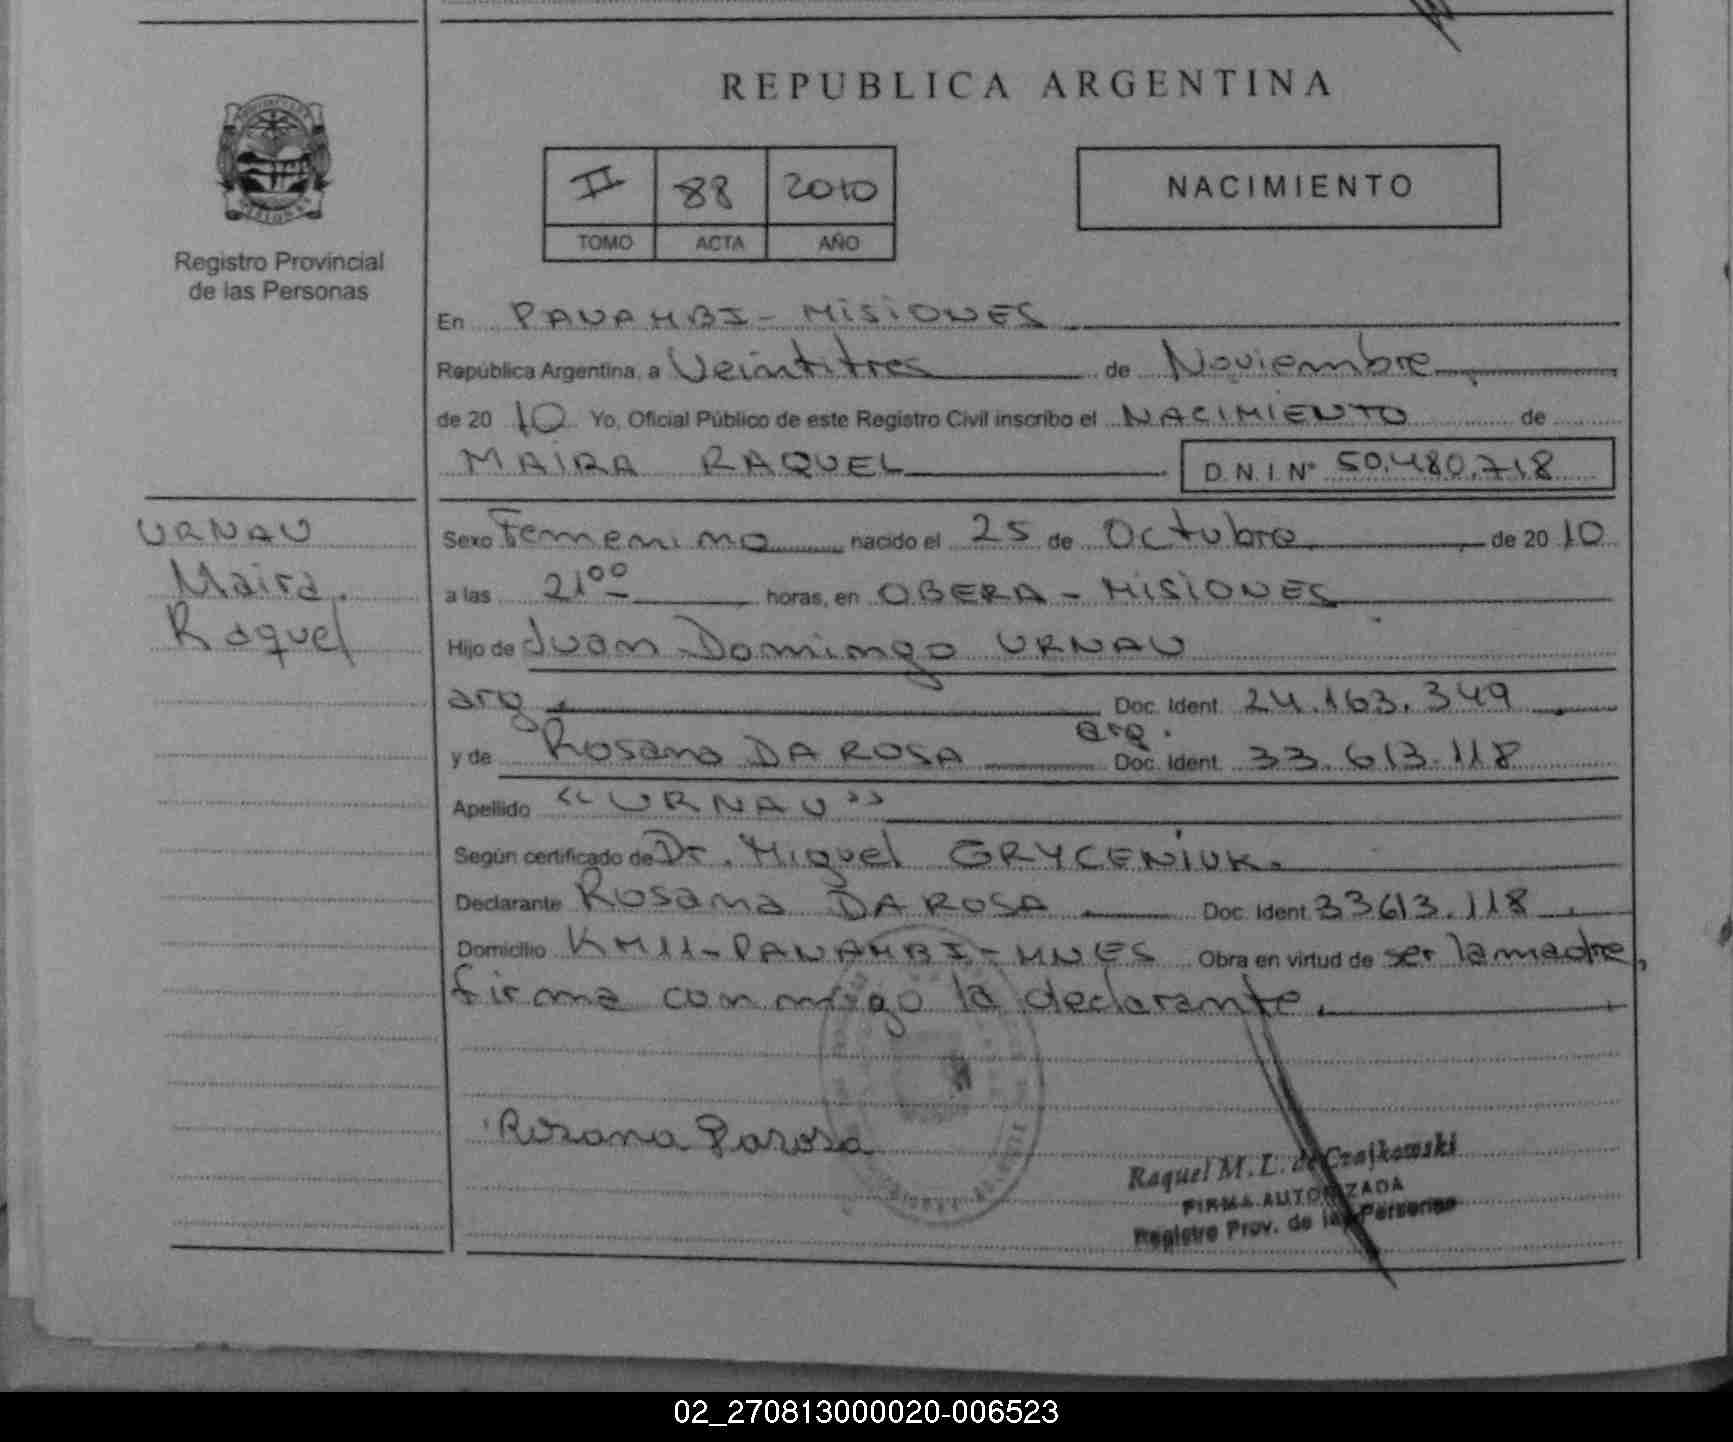 REPUBLICA ARGENTINA
II 88 2010
TOMO ACTA AÑO
NACIMIENTO
MISIONES
Registro Provincial
de las Personas
En PANAMBI - MISIONES
República Argentina, a Veintitres de Noviembre
de 20 10 Yo, Oficial Público de este Registro Civil inscribo el NACIMIENTO de
MAIRA RAQUEL D.N.I. N° 50.480.718
URNAU
Maira
Raquel
Sexo Femenino nacido el 25 de Octubre de 20 10
a las 21 00 horas, en OBERA - MISIONES
Hijo de Juan Domingo URNAU
arg. Doc. Ident. 24.163.349
arg.
y de Rosana DA ROSA Doc. Ident. 33.613.118
Apellido "URNAU"
Según certificado de Dr. Miguel GRYCENIUK.
Declarante Rosana DA ROSA Doc. Ident. 33613.118
Domicilio KM11-PANAMBI-MNES Obra en virtud de ser la madre,
firma conmigo la declarante.
Rosana Darosa
Raquel M. L. de Czajkowski
FIRMA AUTORIZADA
Registro Prov. de las Personas
02_270813000020-006523